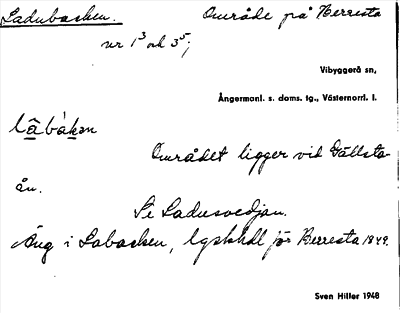 Ladubacken. Område på Berresta
nr 1³ och 3⁵;
Vibyggerå sn,
Ångermanl. s. doms. tg., Västernorrl. l.
lâbàkən
Området ligger vid Gällsta-
ån.
Se Ladusvedjan.
Äng i Labacken, lgskhdl för Berresta 1849.
Sven Hiller 1948